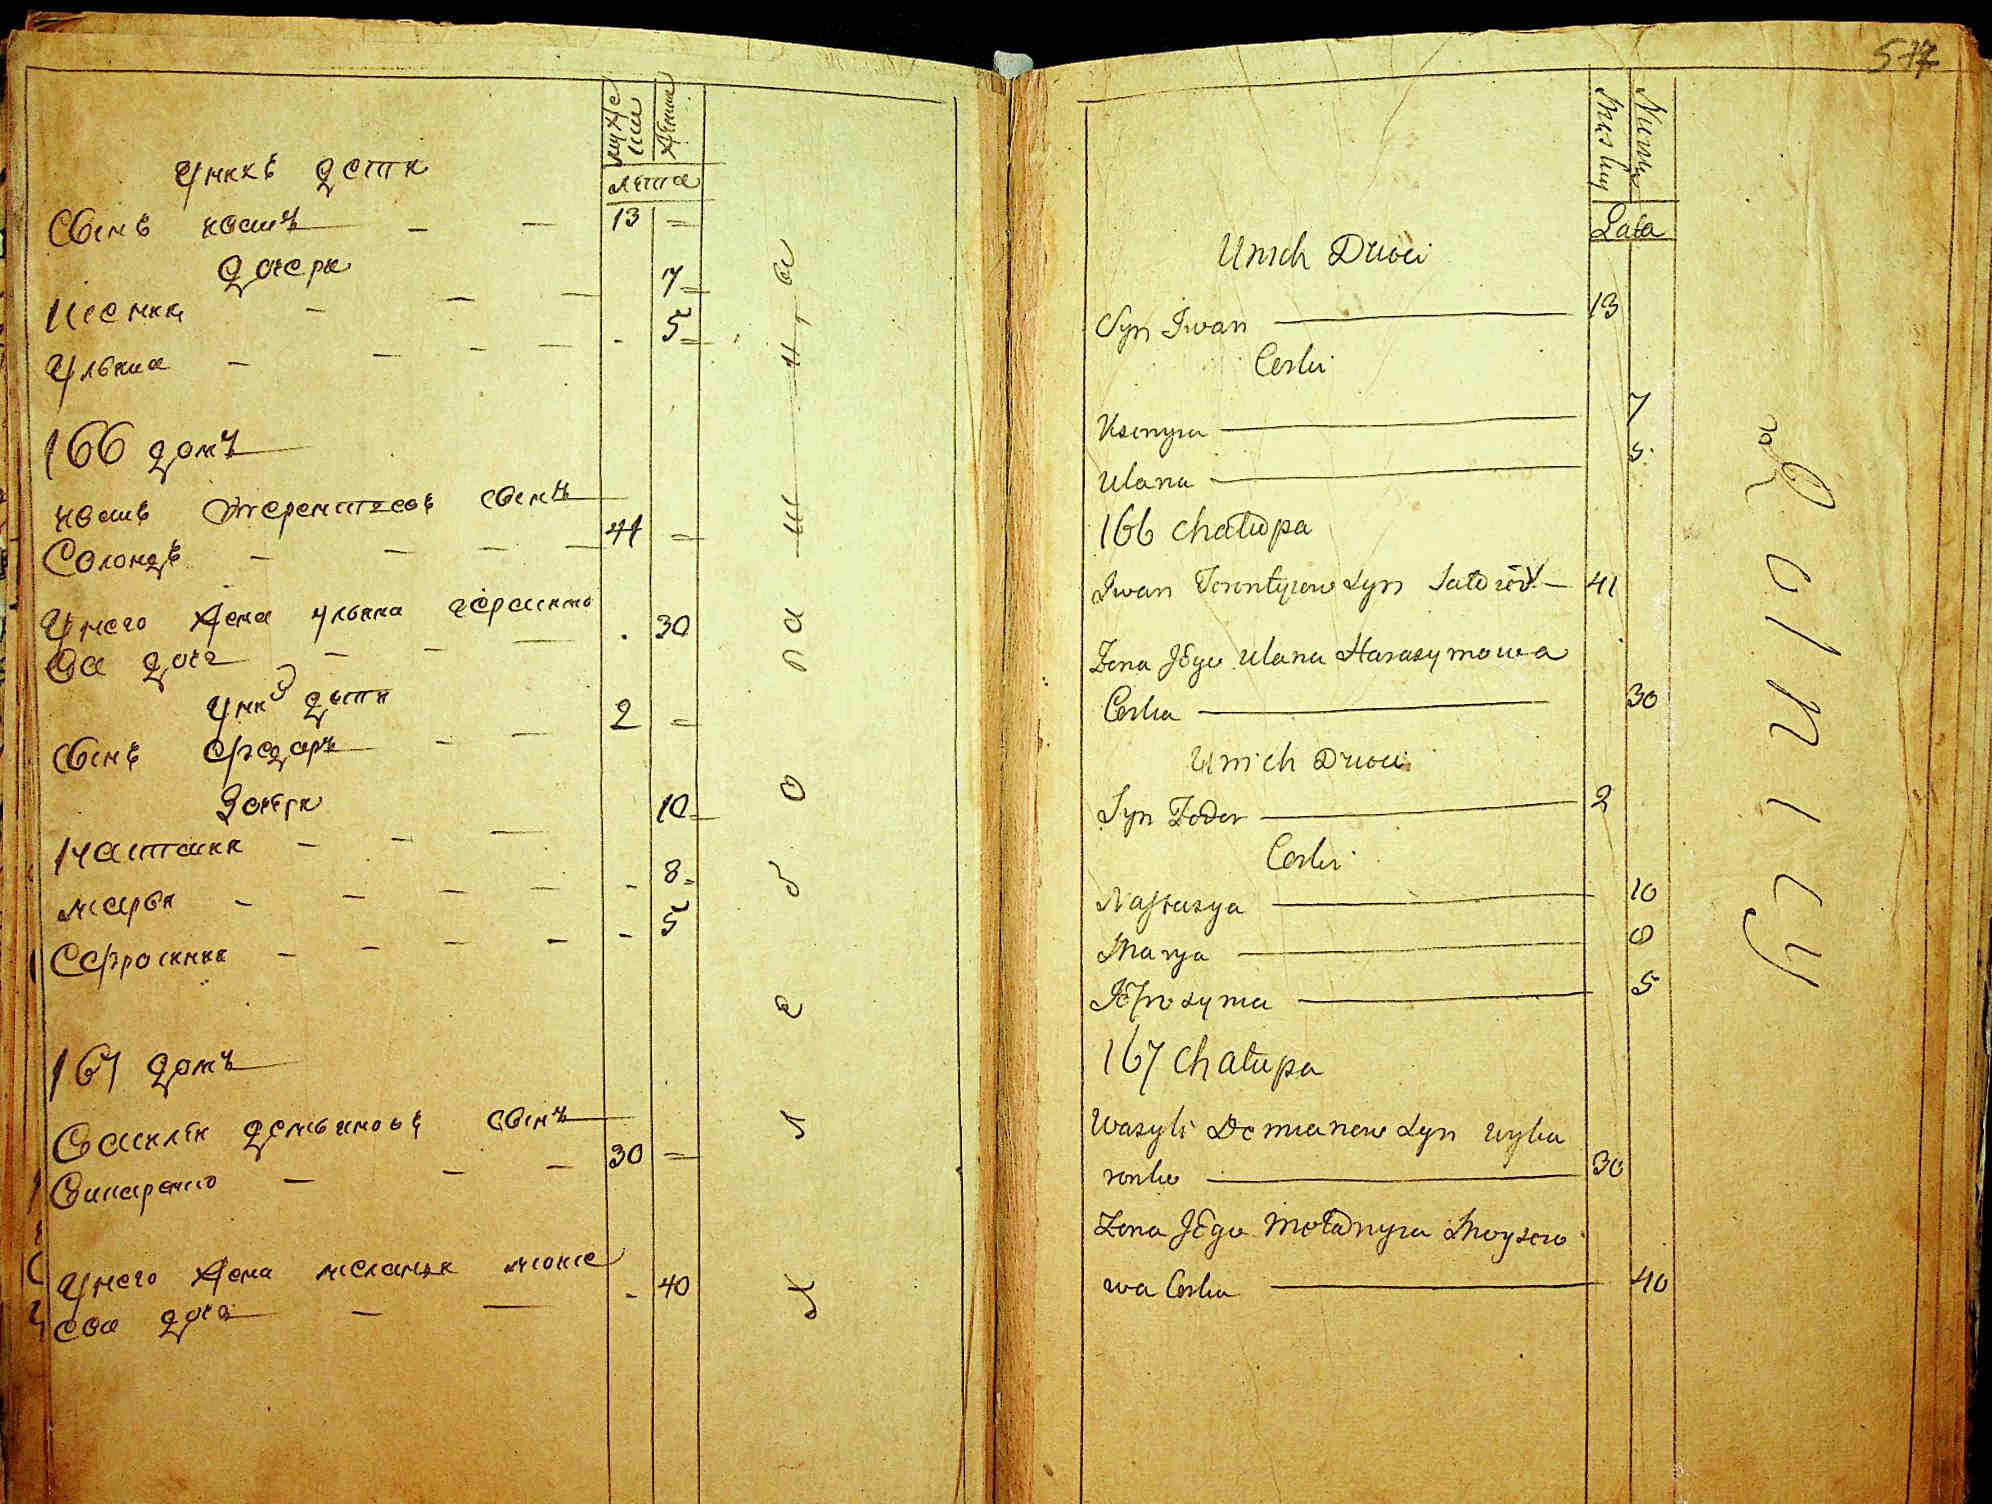 мужеска
женска
лета
У нихъ дети
Сынъ иванъ 13 =
дочери
Ксения 7 =
Ульяна 5 =
166 домъ
иванъ терентиевъ сынъ
Солонд 41 =
У него жена ульяна герасимо
ва дочь 30
У них дети
сынъ Федоръ 2 =
дочери
настасия 10 =
марья 8 =
Ефросиния 5
167 домъ
Василей демьяновъ сынъ
Винаренко 30 =
У него жена меланья моисе
ева дочь 40
х л е б о п а ш ц а
577
Lata
Unich Dzieci
Syn Iwan 13
Corki
Ksenyia 7
Ulana 5
166 Chałupa
Iwan Terentyiow Syn 41
Zona JEgo Ulana Harasymowa
Corka 30
Unich Dzieci
Syn Fedor 2
Corki
Nastasya 10
Marya 8
JEfrosynia 5
167 Chałupa
Wasyli Demianow Syn Wyka
renko 30
Zona JEgo Mełanyia Moyseio
wa Corka 40
Rolnicy